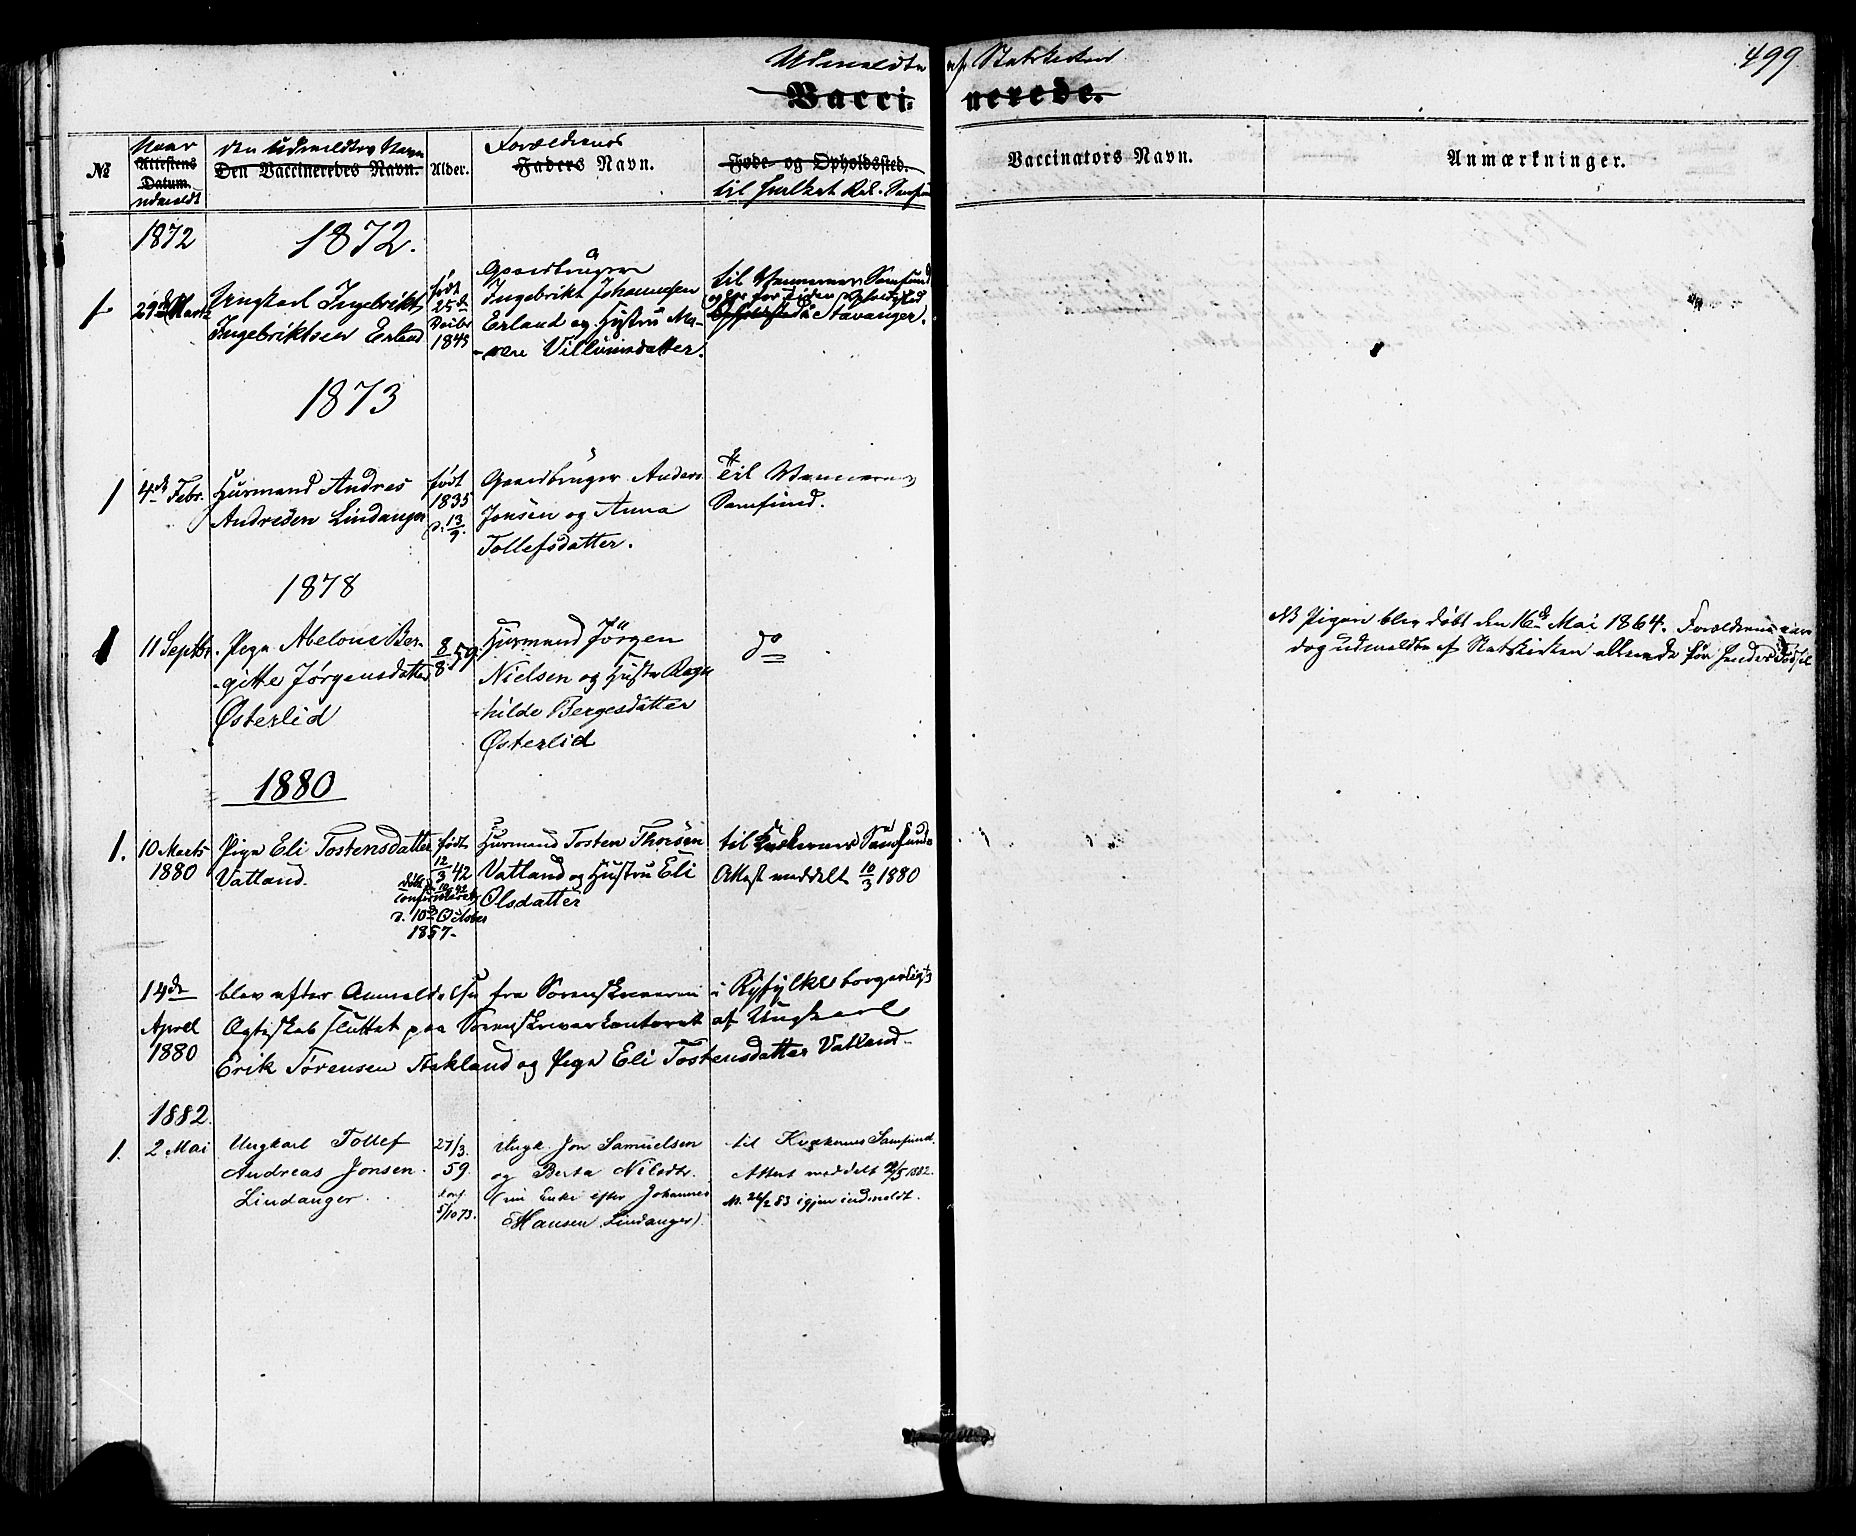 499
Udmeldte af Statskirken
Vaccinerede.
№
Naar
Attestens
Datum.
udmeldt
den Udmeldtes Navn
Den Vaccineredes Navn.
Alder.
Forældrenes
Faders Navn.
Føde- og Opholdssted.
til hvilket Rel. Samfund
Vaccinators Navn.
Anmærkninger.
1872
1872.
1
29de Marts
Ungkarl Ingebrikt
Ingebriktsen Erland
født
25de
Decbr
1845
Gaardbruger
Ingebrikt Johannesen
Erland og Hustru Ma-
-rere Villumsdatter.
til Vennernes Samfund
og har for Tiden Opholdssted
i Stavanger.
1873
1
4de Febr.
Huusmand Andres
Andresen Lindanger
født
1835
d. 13/9.
Gaardbruger Anders
Jonsen og Anna
Tollefsdatter.
Til Vennernes
Samfund.
1878
1
11 Septbr.
Pige Abelone Ber-
-gitte Jørgensdatter
Østerlid
8/8 59.
Huusmand Jørgen
Nielsen og Hustru Ragn
-hilde Bergesdatter
Østerlid
do
NB Pigen blev døbt den 16de Mai 1864. Forældrene vare
dog udmeldte af Statskirken allerede før hendes Fødsel
1880
1.
10 Marts
1880
Pige Eli Tostensdatter
Vatland.
født
12/3 42
confirmeret
d. 10de October
1857.
Huusmand Tosten Thorsen
Vatland og Hustru Eli
Olsdatter
til Kvækernes Samfund
Attest meddelt 10/3 1880
14de
April
1880
blev efter Anmeldelse fra Sorenskriveren i Ryfylke borgerligt
Ægteskab sluttet paa Sorenskriverkontoret af Ungkarl
Erik Sørensen Stakland og Pige Eli Tostensdatter Vatland.
1882.
1.
2 Mai
Ungkarl Tollef
Andreas Jonsen
Lindanger.
27/3.
59.
conf
5/10 73.
Ungk. Jon Samuelsen
og Berta Nilsdtr.
(nu Enke efter Johannes
Hansen Lindanger).
til Kvækernes Samfund.
Attest meddelt 2/5 1882.
NB. 26/2 83 igjen indmeldt.